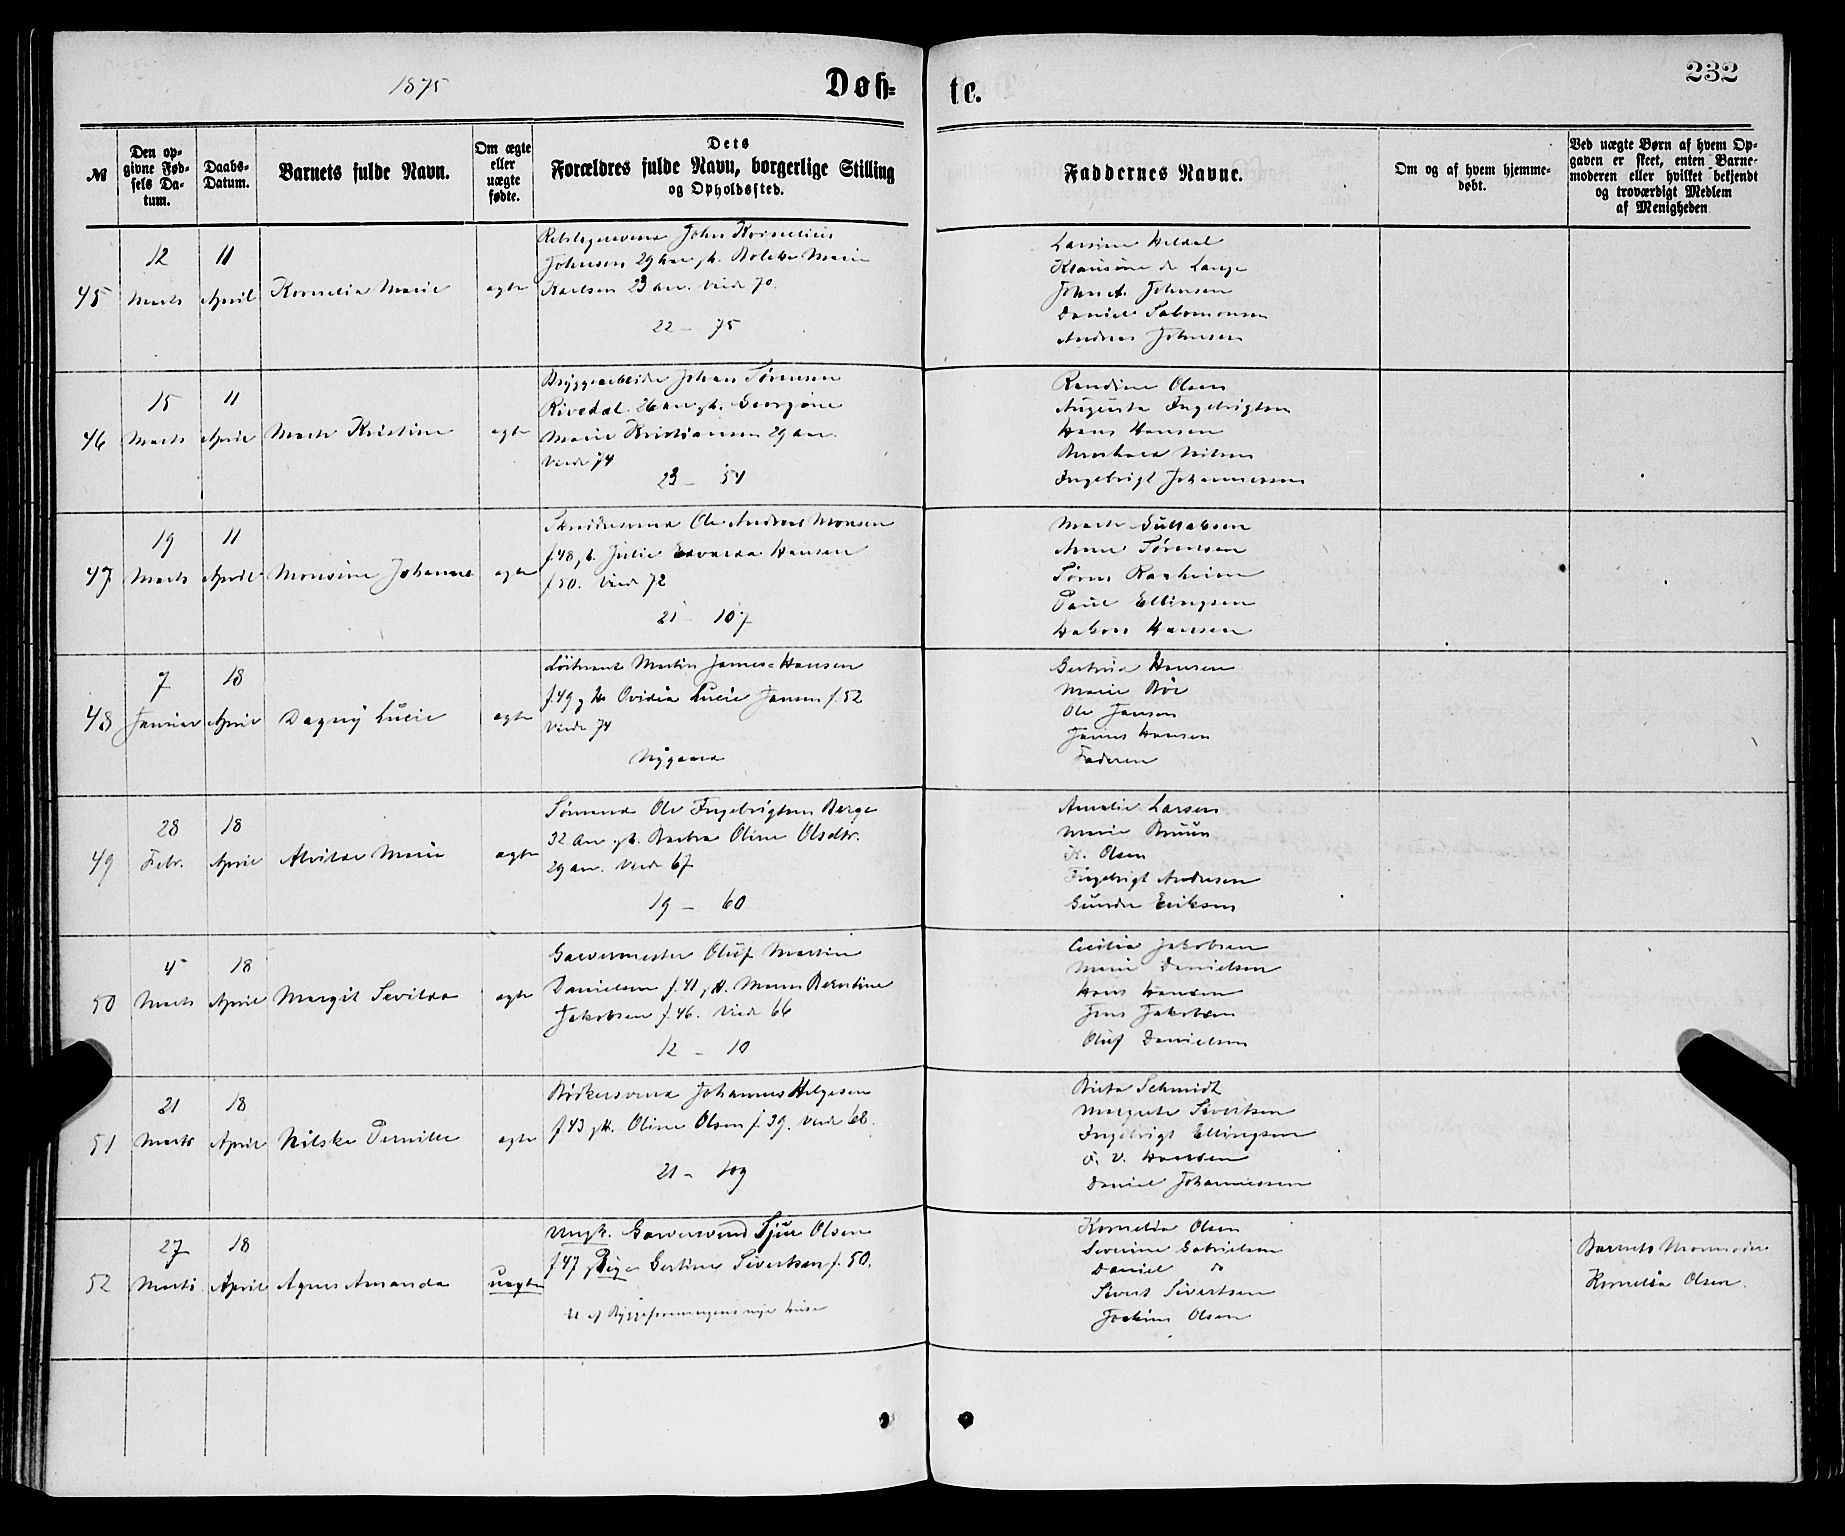 1875
Døb-
te.
232
№
Den op-
givne Fød-
sels Da-
tum.
Daabs-
Datum.
Barnets fulde Navn.
Om ægte
eller
uægte
fødte.
Dets
Forældres fulde Navn, borgerlige Stilling
og Opholdssted.
Faddernes Navne.
Om og af hvem hjemme-
døbt.
Ved uægte Børn af hvem Op-
gaven er skeet, enten Barne-
moderen eller hvilket bekjendt
og troværdigt Medlem
af Menigheden
45
12
Marts
11
April
Kornelia Marie
ægte
John Kornelius
Johnsen 29 Aar gh. Marie
Karlsen 23 Aar. Viede 70.
22 – 75
Larsine Heldal
de Lange
John A. Johnsen
Daniel Salomonsen
Andreas Johnsen
46
15
Marts
11
April
Marte Kristine
ægte
Bryggearbeider Johan Sørensen
Rivedal 26 Aar gh. Georgine
Marie Kristiansen 29 Aar.
Viede 74
23 – 54
Randine Olsen
Augusta Ingebrigtsen
Hans Hansen
Bernhard Nilsen
Ingebrigt Johannessen
47
19
Marts
11
April
Monsine Johanne
ægte
Skreddersvend Ole Andreas Monsen
f. 48 gh. Julie Edvarda Hansen
f. 50. Viede 72
21 – 107
Marte Gullaksen
Anne Sørensen
Søren
Paul Ellingsen
Hakon Hansen
48
7
Januar
18
April
Dagny Lucie
ægte
Løitnant Martin James Hansen
f. 49 gh. Ovidia Lucie Jansen f. 52
Viede 74
Nygaard
Gertrud Hansen
Marie Bøe
Ole Jansen
James Hansen
Faderen
49
28
Febr.
18
April
Alvilde Marie
ægte
Sømand Ole Ingebrigtsen Berge
32 Aar gh. Barbra Oline Olsdtr.
29 Aar. Viede 67
19 – 60
Amalie Larsen
Marie Bruun
K. Olsen
Ingebrigt Andersen
Gunder Eriksen
50
4
Marts
18
April
Margit Sevilda
ægte
Garvermester Oluf Martin
Danielsen f. 41 gh. Maren Berntine
Jakobsen f. 46. Viede 66
12 – 10
Cecilia Jakobsen
Marie Danielsen
Hans Hansen
Jens Jakobsen
Oluf Danielsen
51
21
Marts
18
April
Nilske Pernille
ægte
Bødkersvend Johannes Helgesen
f. 43 gh. Oline Olsen f. 39. Viede 68.
21 – 109
Birta Schmidt
Margrete Sivertsen
Ingebrigt Ellingsen
Hansen
Daniel Johannessen
52
27
Marts
18
April
Agnes Amanda
uægte
Ungk. Garversvend Sjur Olsen
f. 47 Pige Gertine Sivertsen f. 50.
nye Huse
Kornelia Olsen
Severine Gabrielsen
Daniel do
Sivert Sivertsen
Joakim Olsen
Barnets Mormoder
Kornelia Olsen.